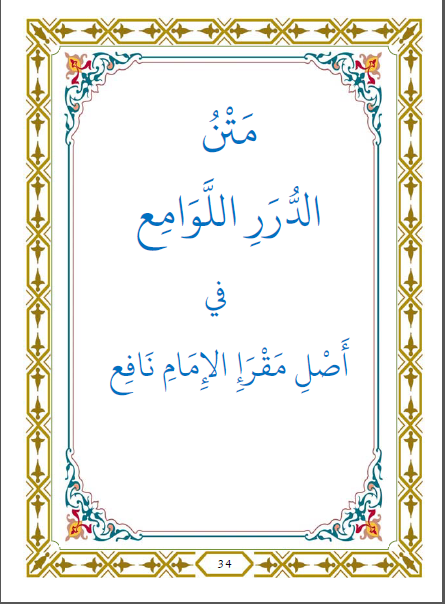 مَتْنُ
الدُّرَرِ اللَّوَامِع
في
أَصْلِ مَقْرَإِ الإِمَامِ نَافِع
34